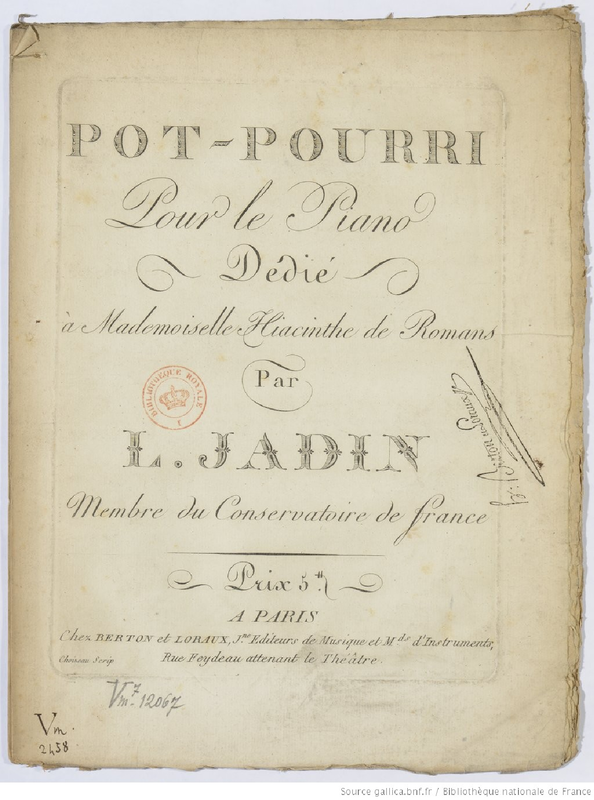 POT-POURRI
Pour le Piano
Dédié
à Mademoiselle Hiacinthe de Romans
Par
BIBLIOTHEQUE ROYALE
L. JADIN
Membre du Conservatoire de france
Prix 5ᵗᵗ
A PARIS
Chez BERTON et LORAUX, Jⁿᵉ Editeurs de Musique et Mᵈˢ d'Instruments,
Rue Feydeau attenant le Théâtre.
Scrip
Vm⁷ 12067
Vm.
2458
Source gallica.bnf.fr / Bibliothèque nationale de France